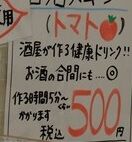 (トマト)
酒屋が作る健康ドリンク!!
お酒の合間にも....◎
作る時間5分〜
かかります
税込
500円